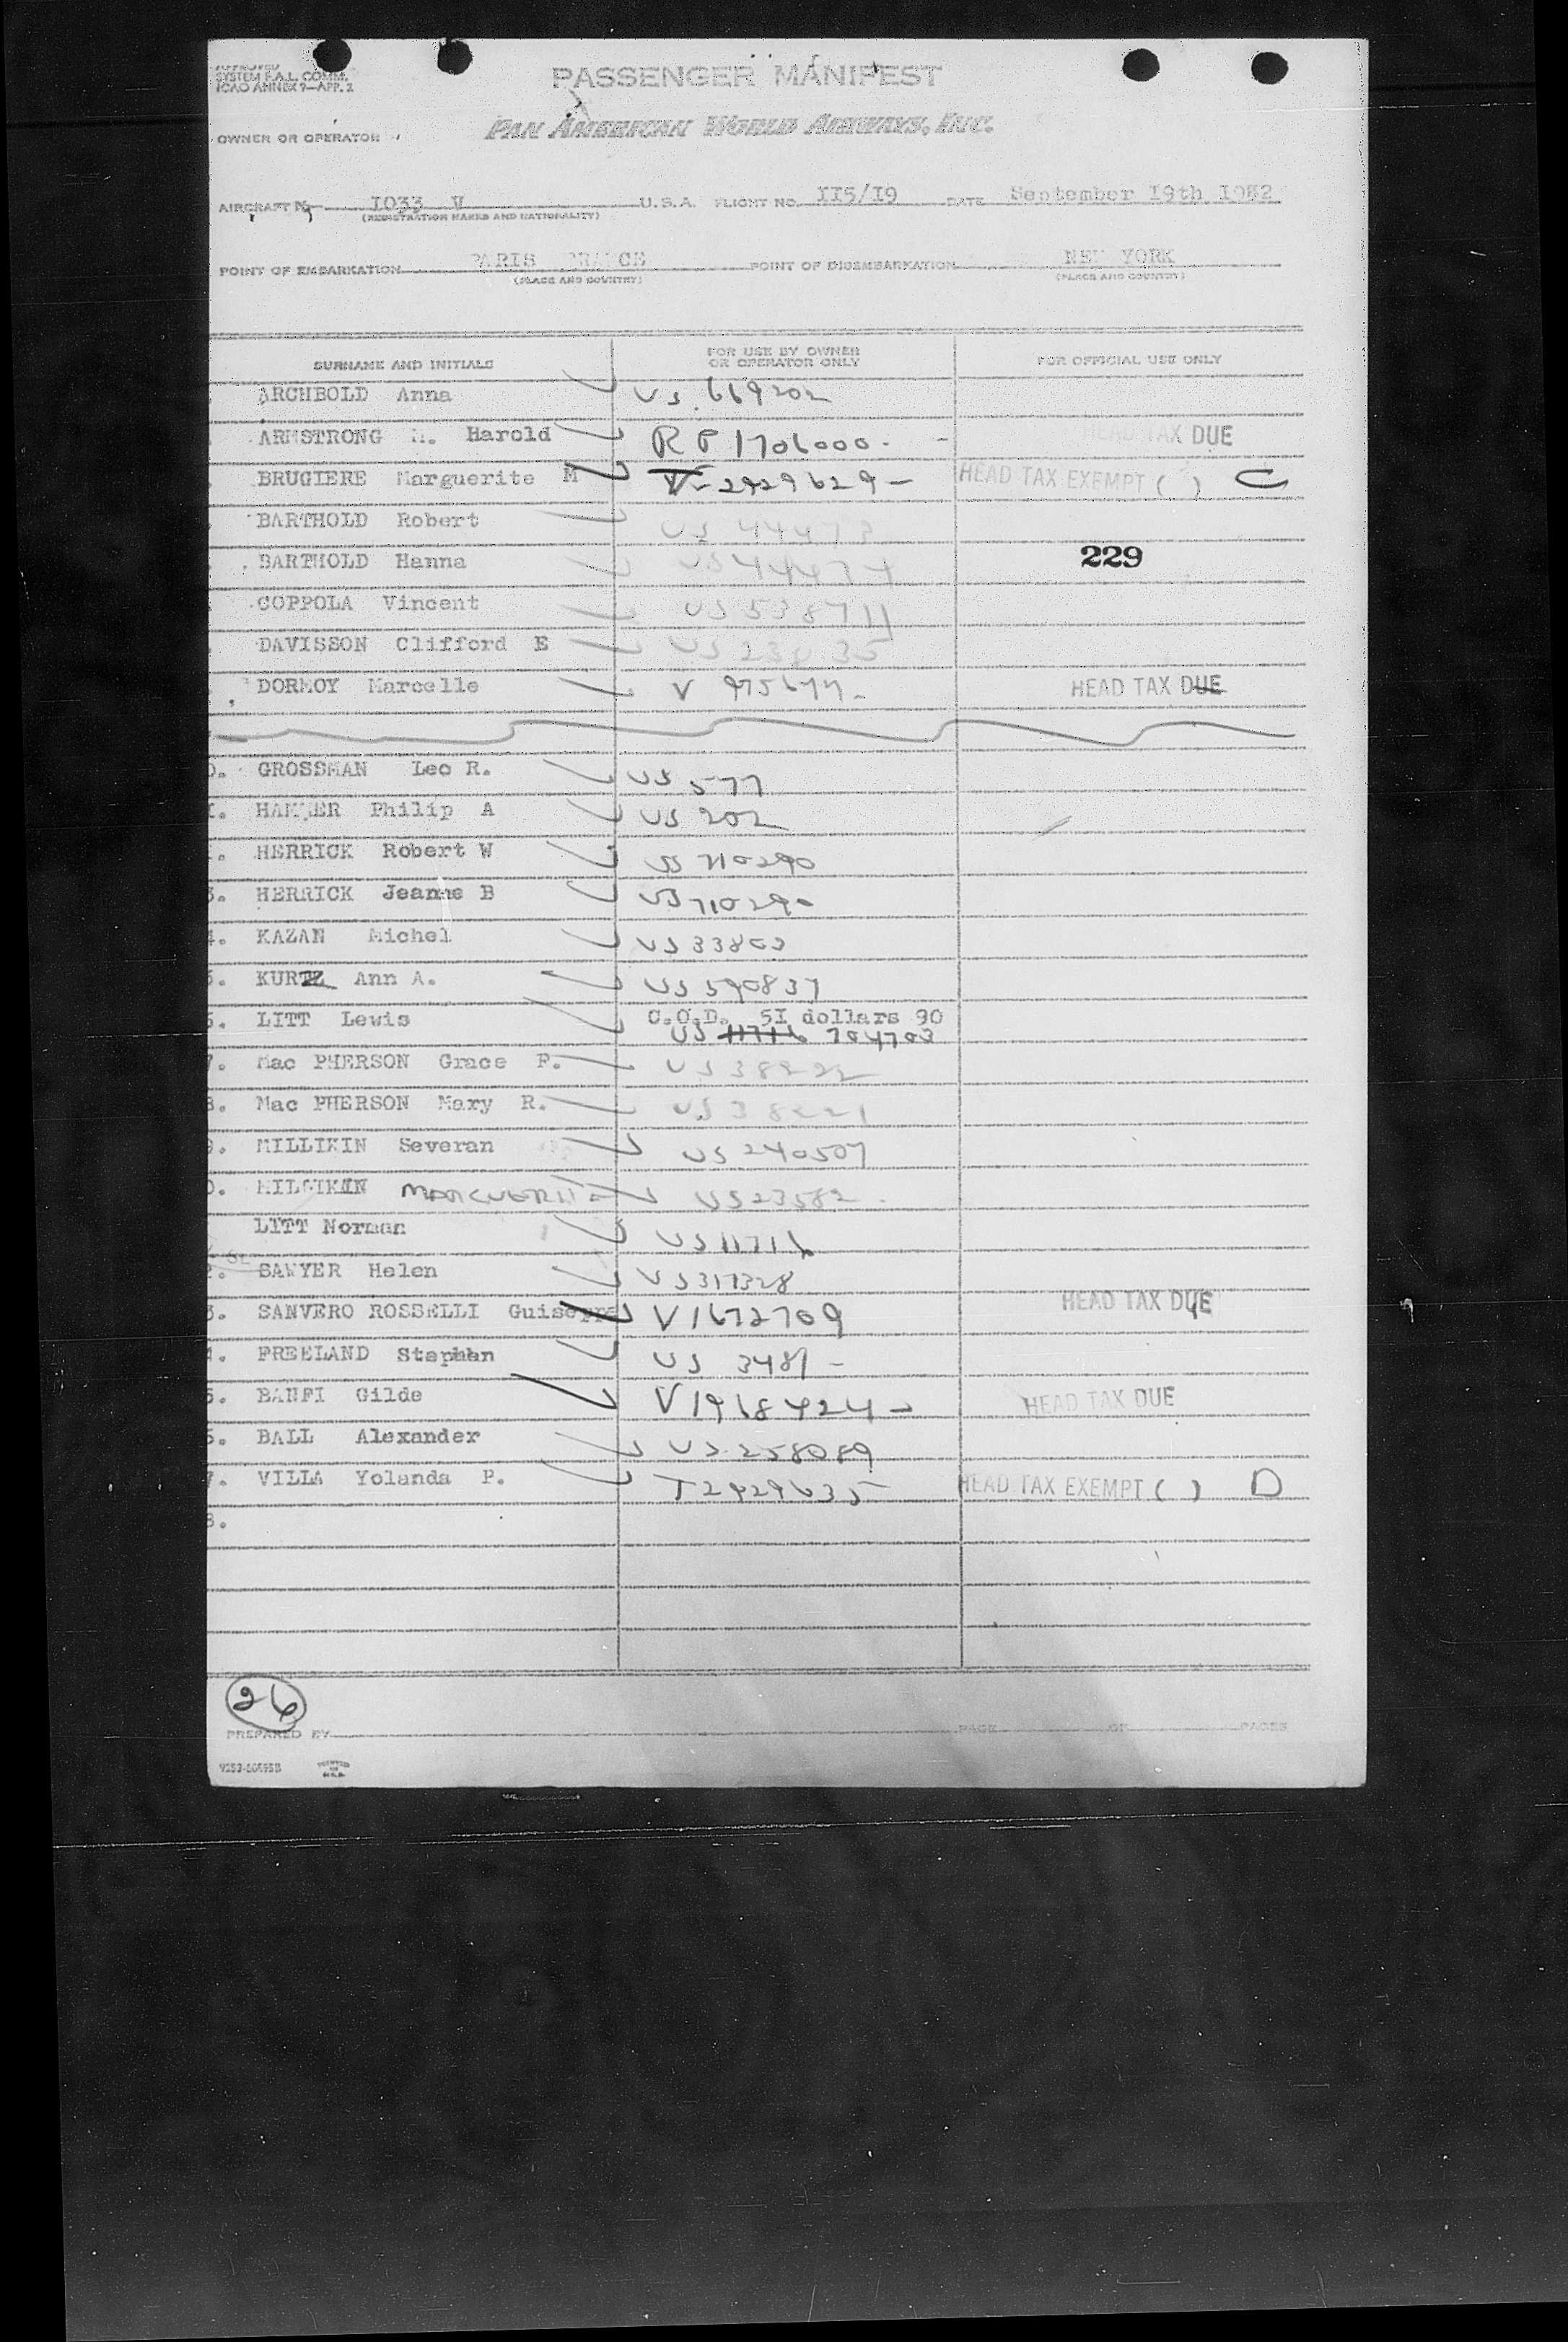 APPROVED
SYSTEM F.A.L. COMM.
ICAO ANNEX 9—APP. 2
PASSENGER MANIFEST
OWNER OR OPERATOR
PAN AMERICAN WORLD AIRWAYS, INC.
AIRCRAFT 1033 V U.S.A. FLIGHT NO. II5/I9 DATE September 19th 1952
(REGISTRATION MARKS AND NATIONALITY)
POINT OF EMBARKATION PARIS FRANCE POINT OF DISEMBARKATION NEW YORK
(PLACE AND COUNTRY) (PLACE AND COUNTRY)
SURNAME AND INITIALS FOR USE BY OWNER OR OPERATOR ONLY FOR OFFICIAL USE ONLY
ARCHBOLD Anna US 669202
ARMSTRONG Harold RP 1706000 HEAD TAX DUE
BRUGIERE Marguerite M V-2929629 HEAD TAX EXEMPT ( ) C
BARTHOLD Robert US 44473
BARTHOLD Hanna US 44474 229
COPPOLA Vincent US 538711
DAVISSON Clifford E US
DORMOY Marcelle V HEAD TAX DUE
0. GROSSMAN Leo R. US 577
HAMMER Philip A US 202
HERRICK Robert W US 710290
3. HERRICK Jeanne B US 710290
4. KAZAN Michel US 33803
5. KURTZ Ann A. US 590837
6. LITT Lewis C.O.D. 5I dollars 90
US 11716 704703
7. Mac PHERSON Grace F. US 38222
8. Mac PHERSON Mary R. US
9. MILLIKIN Severan US 240507
0. MILLIKEN MARGUERITE US 23582
LITT Norman US 11716
2. SAWYER Helen US 317328
3. SANVERO ROSSELLI Guiseppe V1672709 HEAD TAX DUE
4. FREELAND Stephen US 3481
5. BANFI Gilde V1968424 HEAD TAX DUE
6. BALL Alexander US 258089
7. VILLA Yolanda P. T2929635 HEAD TAX EXEMPT ( ) D
8.
26
PREPARED BY PAGE OF PAGES
PRINTED
IN
U.S.A.